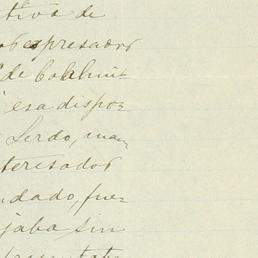 tiva de
os espresados
de Coahui-
esa dispo-
Lerdo, man-
teresados
ndado, fue-
jaba sin